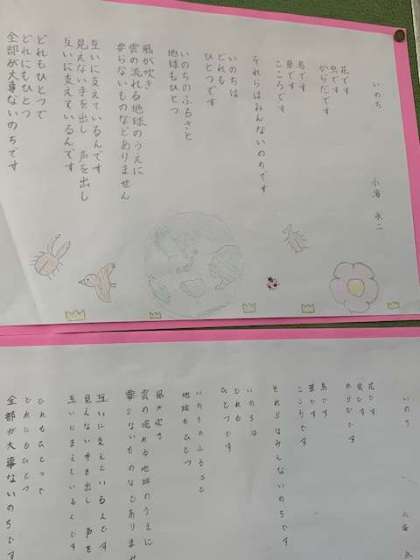 いのち
小海 永二
花です
虫です
からだです
鳥です
草です
こころです
それらはみんないのちです
いのちは
どれも
ひとつです
いのちのふるさと
地球もひとつ
風が吹き
雲の流れる地球のうえに
要らないものなどありません
互いに支えているんです
見えない手を出し 声を出し
互いに支えているんです
どれもひとつで
どれにもひとつ
全部が大事ないのちです
いのち
小海
花です
虫です
からだです
鳥です
草です
こころです
それらはみんないのちです
いのちは
どれも
ひとつです
いのちのふるさと
地球もひとつ
風が吹き
雲の流れる地球のうえに
要らないものなどありませ
互いに支えているんです
見えない手を出し 声を
互いに支えているんで
どれもひとつで
どれにもひとつ
全部が大事ないのちです